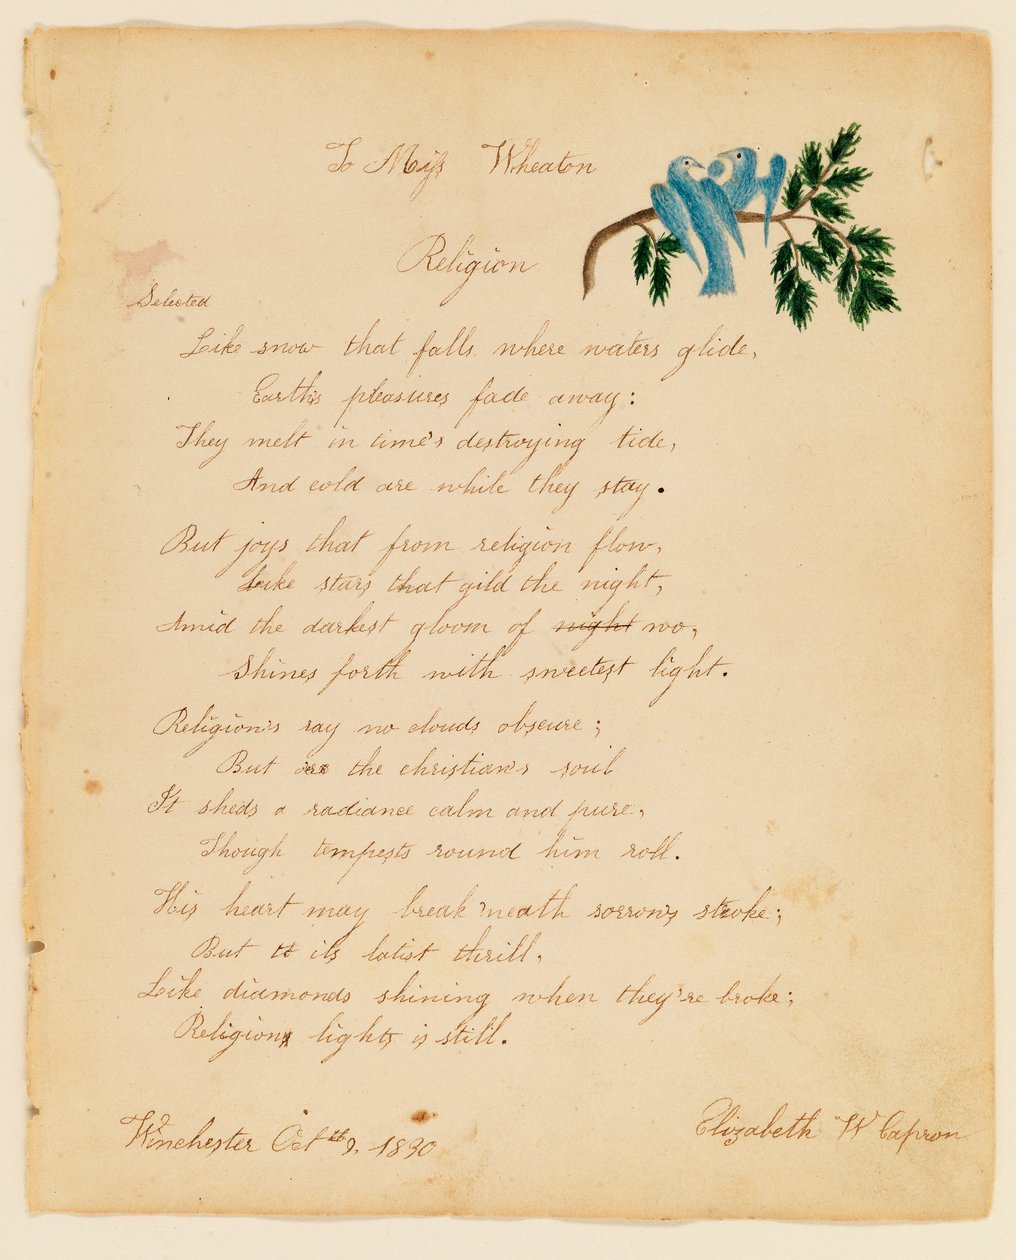 To Miss Wheaton
Religion
Selected
Like snow that falls where waters glide,
Earth's pleasures fade away:
They melt in time's destroying tide,
And cold are while they stay.
But joys that from religion flow,
Like stars that gild the night,
Amid the darkest gloom of night wo,
Shines forth with sweetest light.
Religion's ray no clouds obscure;
But the christian's soul
It sheds a radiance calm and pure,
Though tempests round him roll.
His heart may break 'neath sorrow's stroke;
But to its latist thrill,
Like diamonds shining when they're broke;
Religion lights is still.
Winchester Oct th 9, 1830
Elizabeth W Capron